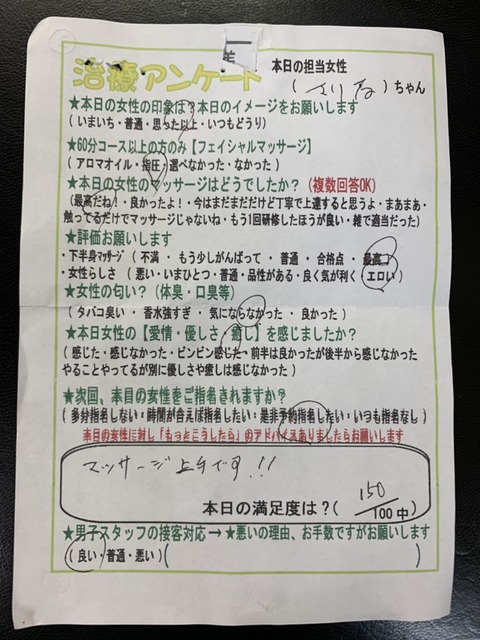 治療アンケート 本日の担当女性
( )ちゃん
★本日の女性の印象は?本日のイメージをお願いします
(いまいち・普通・思った以上・いつもどうり)
★60分コース以上の方のみ【フェイシャルマッサージ】
(アロマオイル・指圧・選べなかった・なかった)
★本日の女性のマッサージはどうでしたか?(複数回答OK)
(最高だね!・良かったよ!・今はまだまだだけど丁寧で上達すると思うよ・まあまあ・
触ってるだけでマッサージじゃないね・もう1回研修したほうが良い・雑で適当だった)
★評価お願いします
・下半身マッサージ(不満・もう少しがんばって・普通・合格点・最高)
・女性らしさ(悪い・いまひとつ・普通・品性がある・良く気が利く・エロい)
★女性の匂い?(体臭・口臭等)
(タバコ臭い・香水強すぎ・気にならなかった・良かった)
★本日女性の【愛情・優しさ・癒し】を感じましたか?
(感じた・感じなかった・ビンビン感じた・前半は良かったが後半から感じなかった
やることやってるが別に優しさや癒しは感じなかった)
★次回、本日の女性をご指名されますか?
(多分指名しない・時間が合えば指名したい・是非予約指名したい・いつも指名なし)
本日の女性に対し「もっとこうしたら」のアドバイスありましたらお願いします
マッサージ上手です!!
本日の満足度は?(150/100中)
★男子スタッフの接客対応→★悪いの理由、お手数ですがお願いします
(良い・普通・悪い)( )